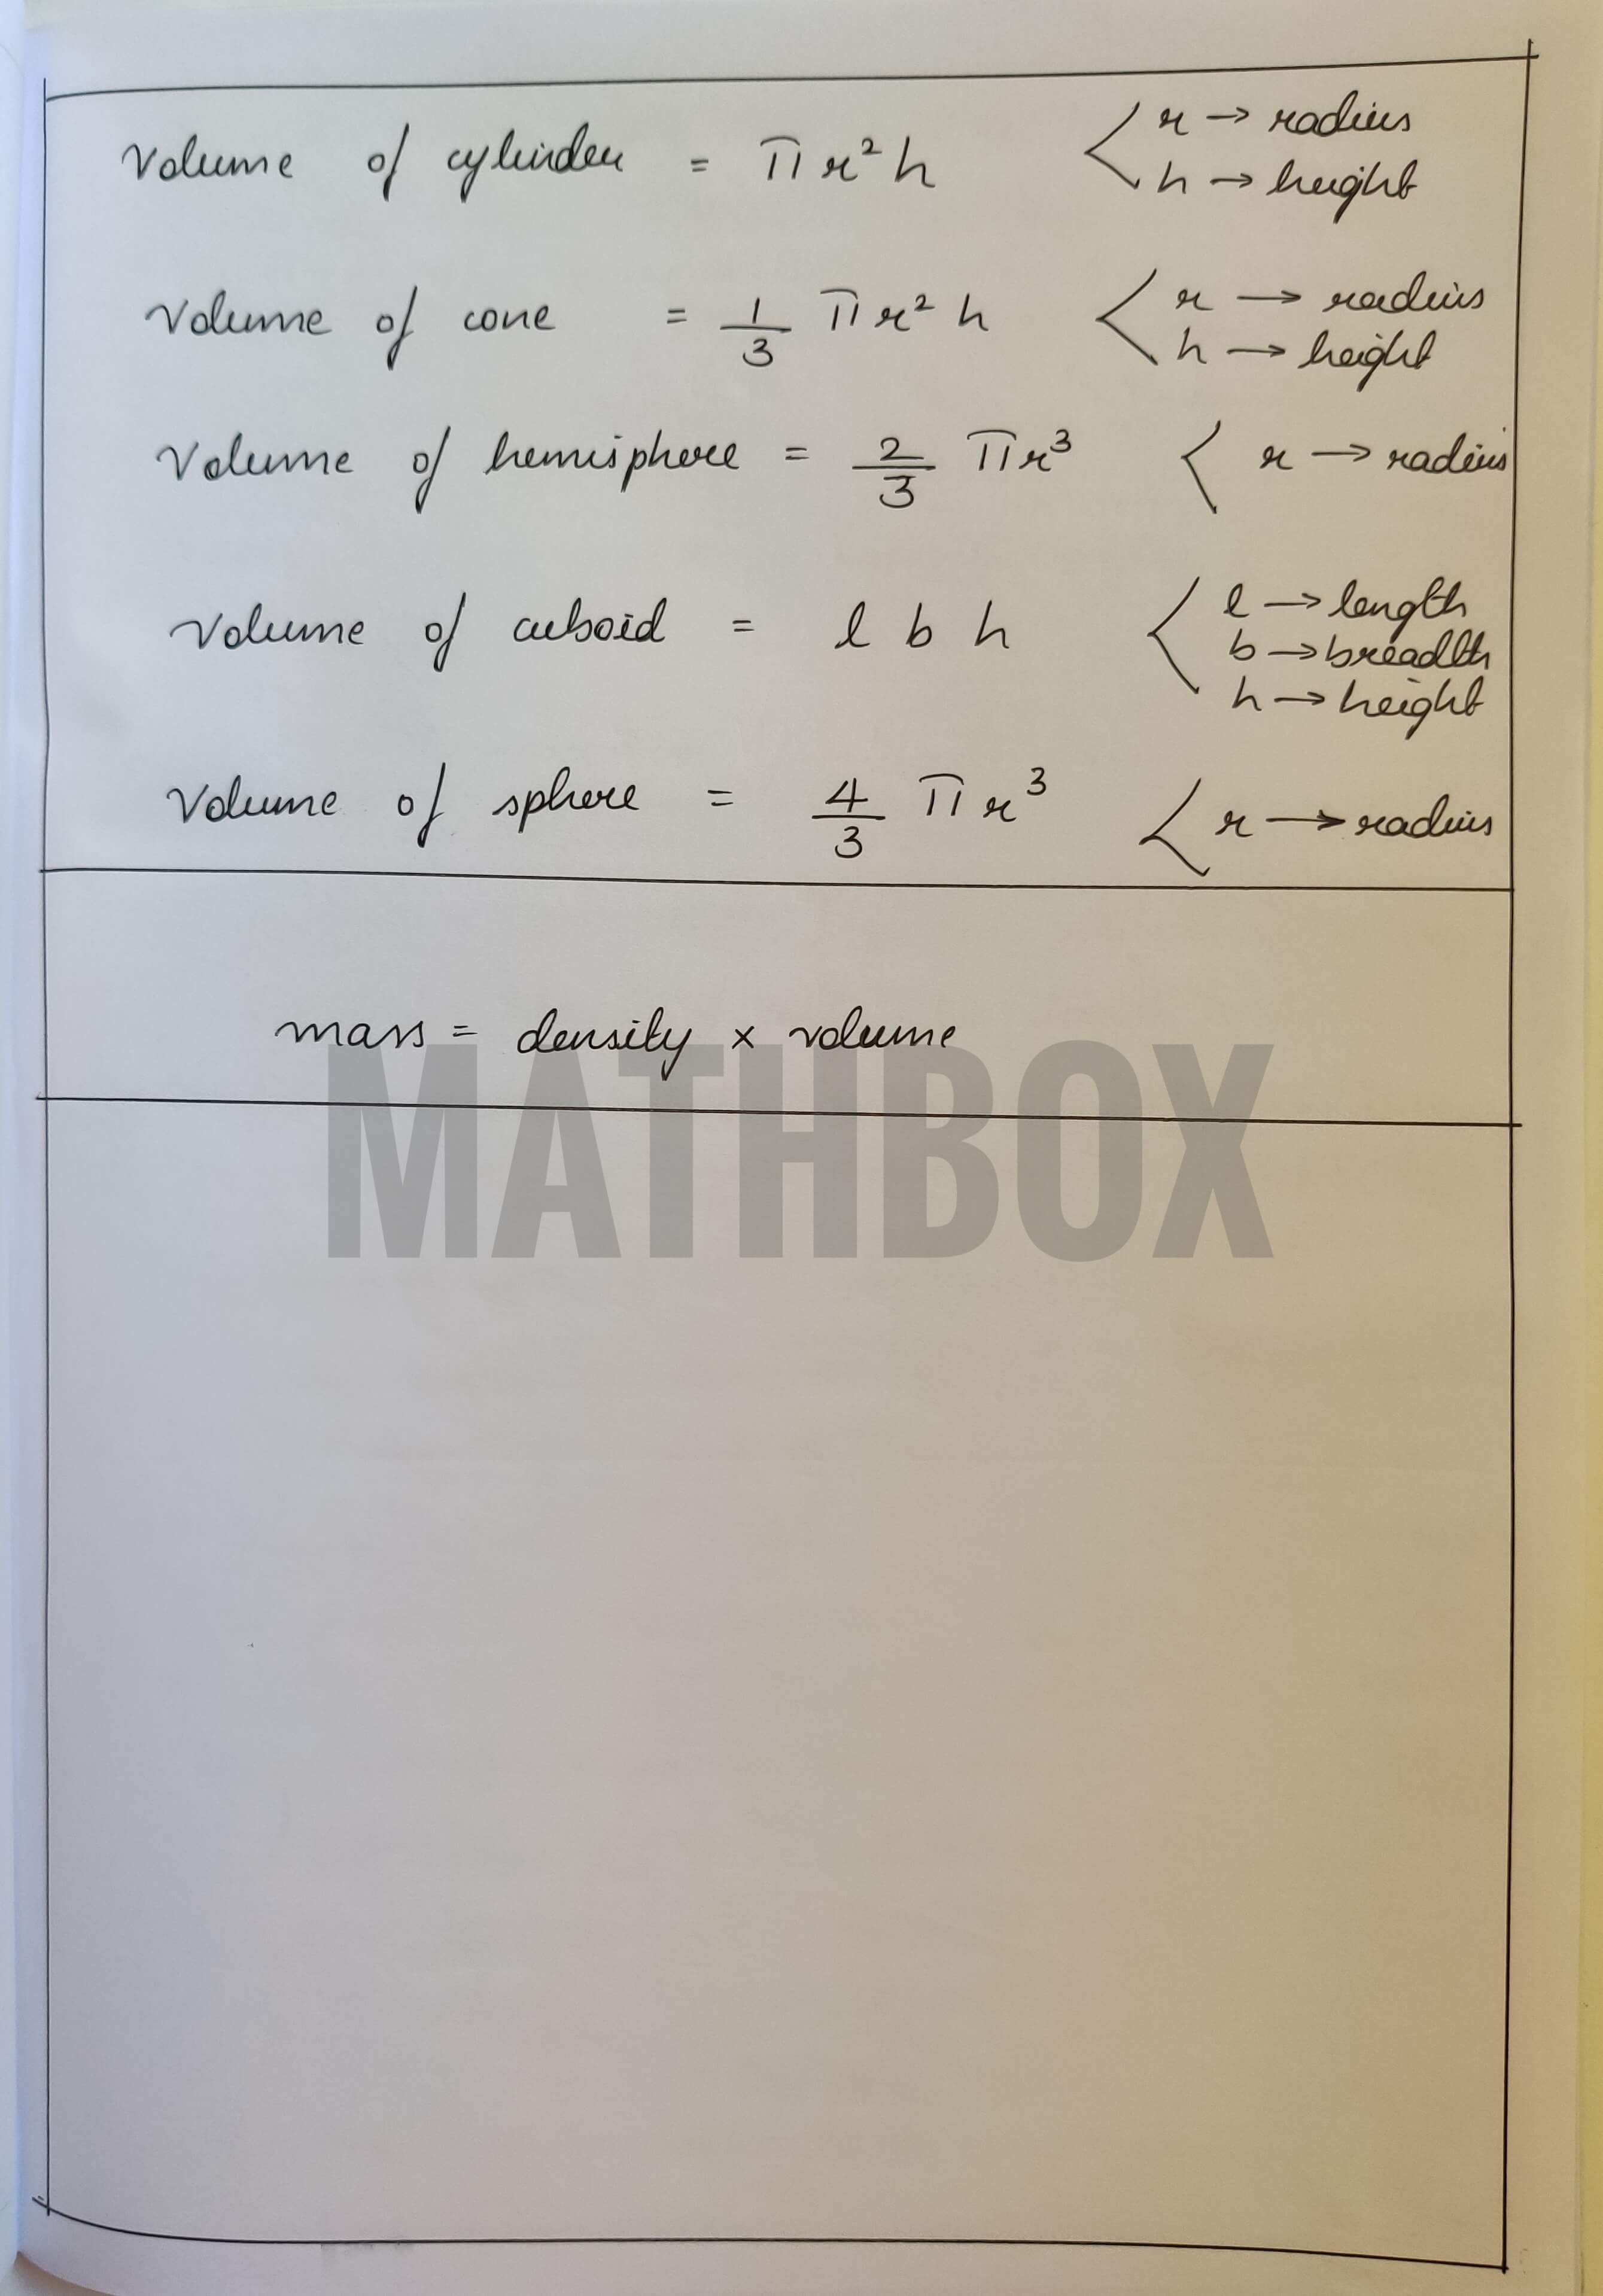 Volume of cylinder = πr²h < r → radius
h → height
Volume of cone = 1/3 πr²h < r → radius
h → height
Volume of hemisphere = 2/3 πr³ < r → radius
Volume of cuboid = l b h < l → length
b → breadth
h → height
Volume of sphere = 4/3 πr³ < r → radius
mass = density × volume
MATHBOX